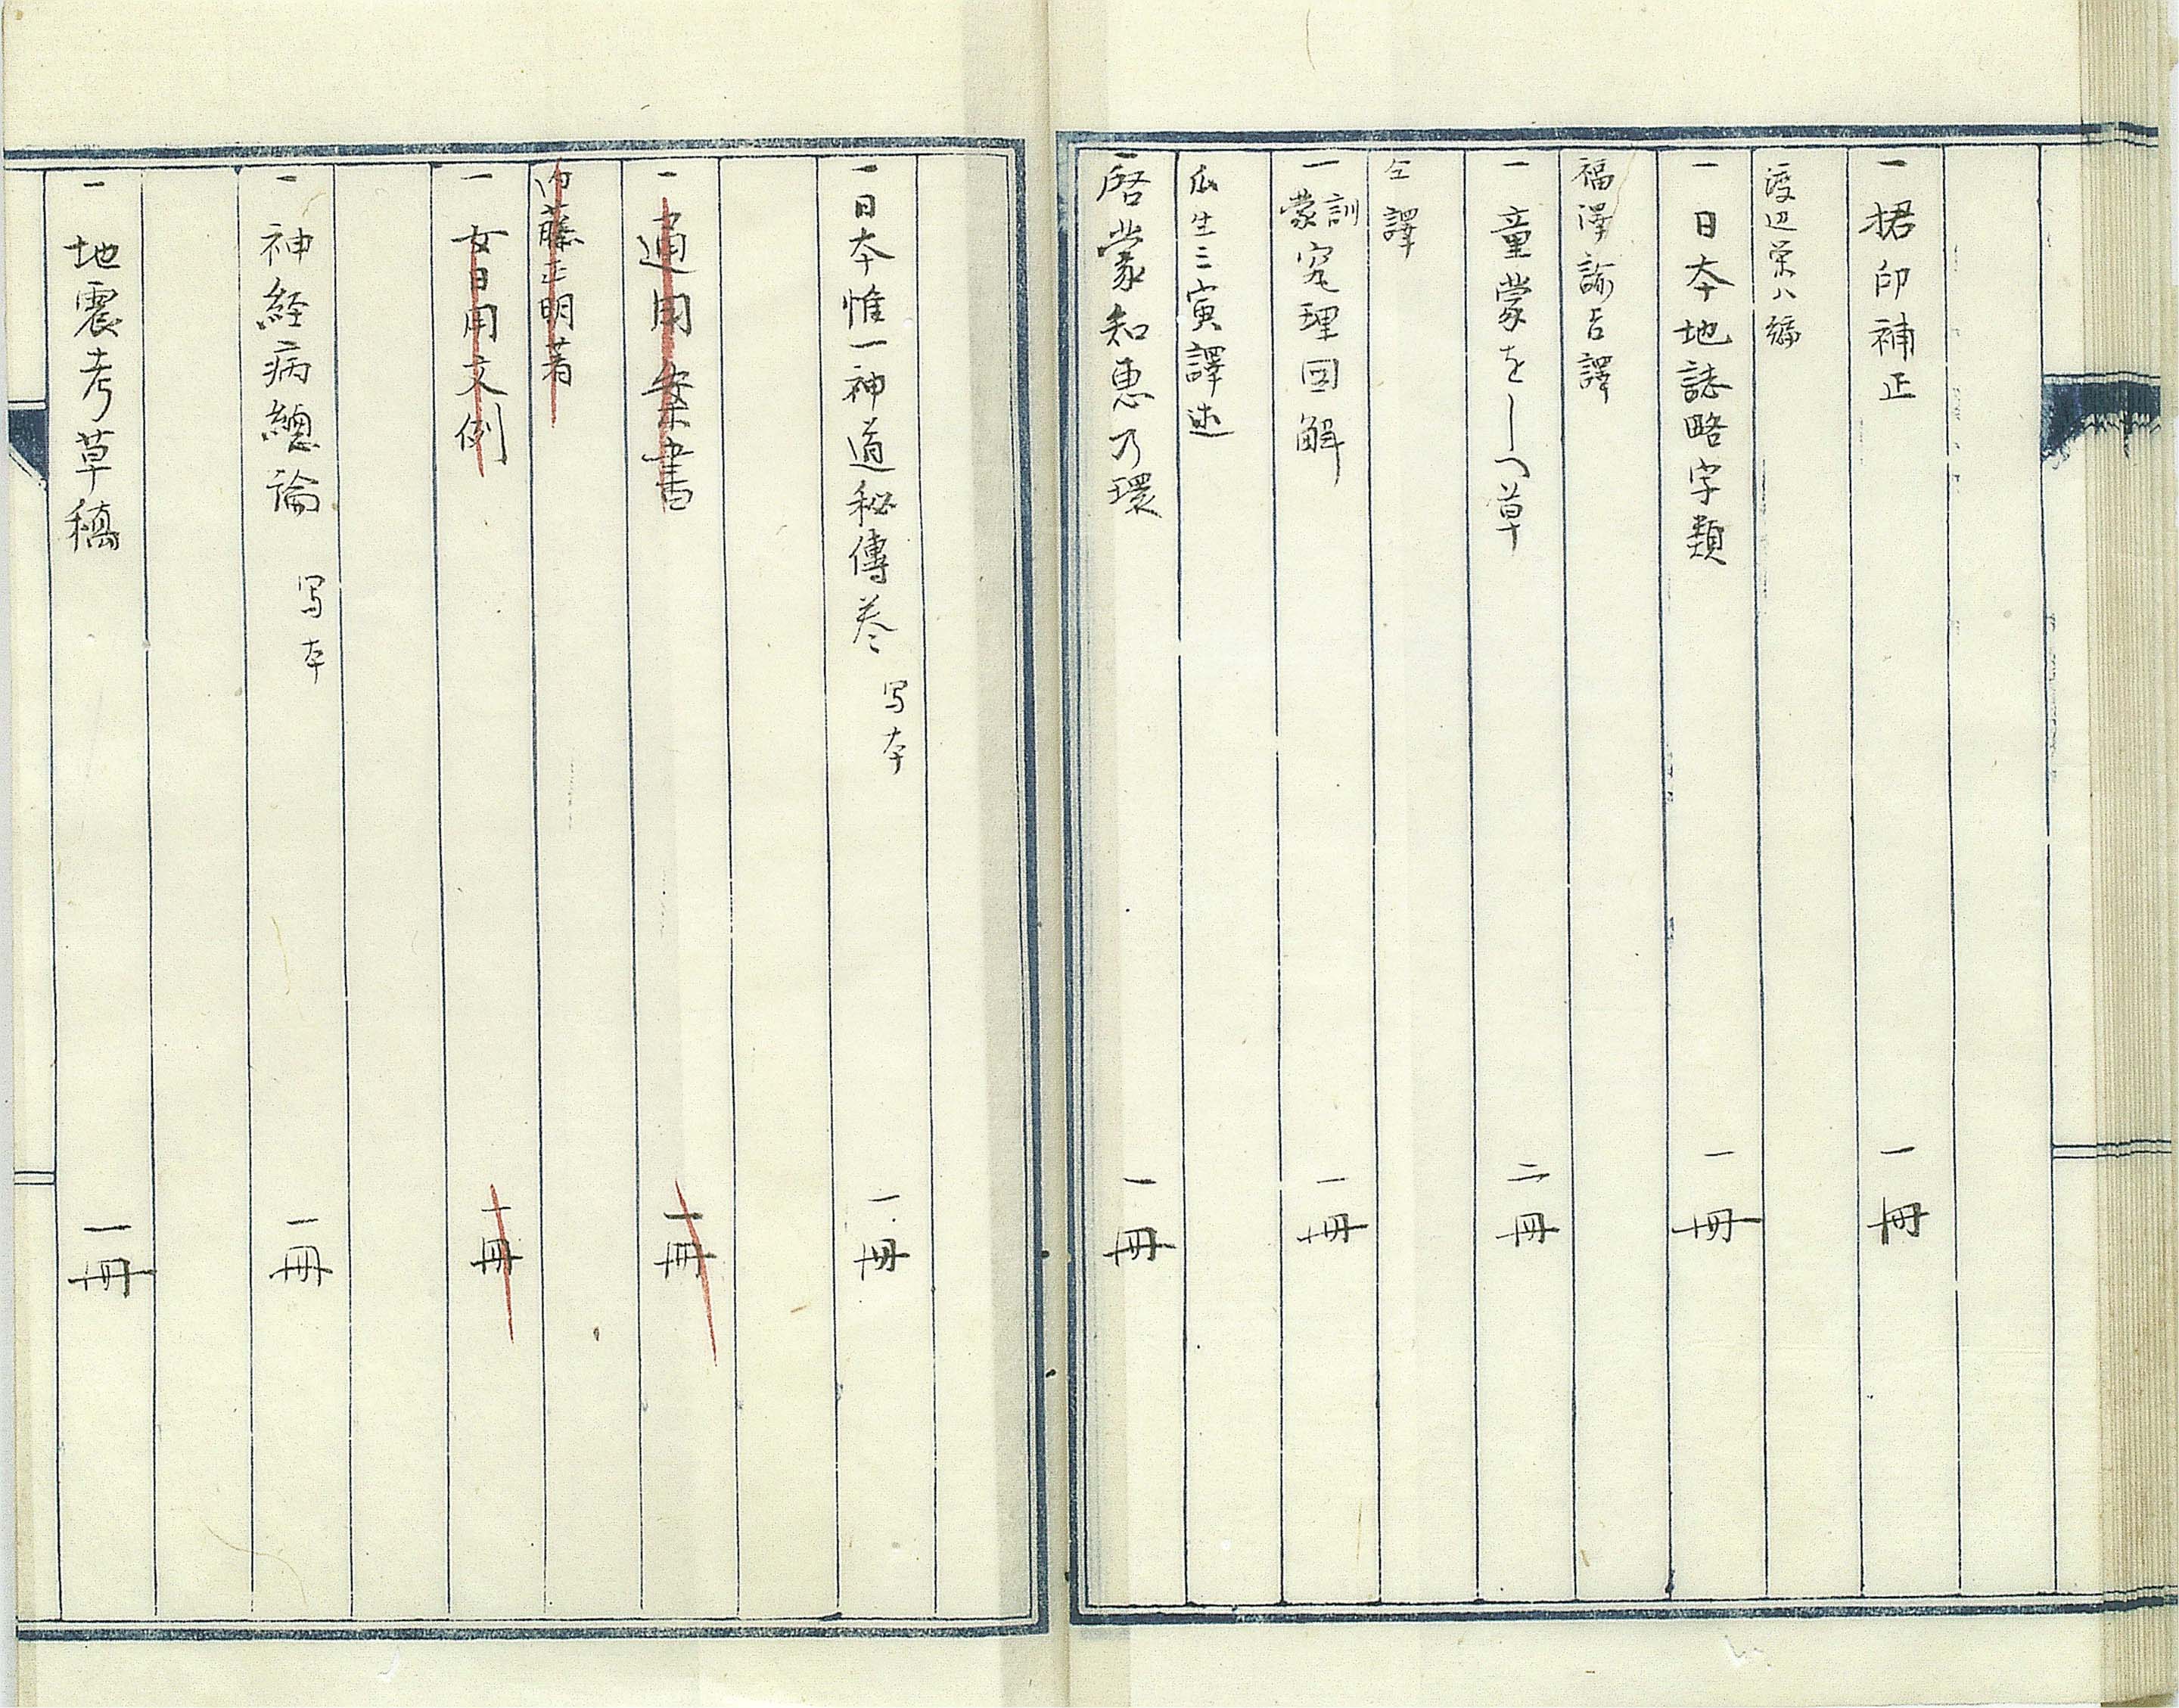 一 捃印補正 一冊
渡辺栄八編
一 日本地誌略字類 一冊
福澤諭吉譯
一 童蒙をしへ草 二冊
仝譯
一 訓蒙窮理図解 一冊
瓜生三寅譯述
一 啓蒙知恵乃環 一冊
一 日本惟一神道秘傳巻 写本 一冊
一 通用案書 一冊
内藤正明著
一 女日用文例 一冊
一 神経病總論 写本 一冊
一 地震考草稿 一冊